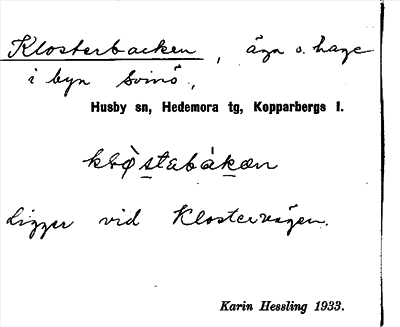 Klosterbacken, äga o. hage
i byn Svinö.,
Husby sn, Hedemora tg, Kopparbergs l.
Ligger vid Klostervägen.
Karin Hessling 1933.